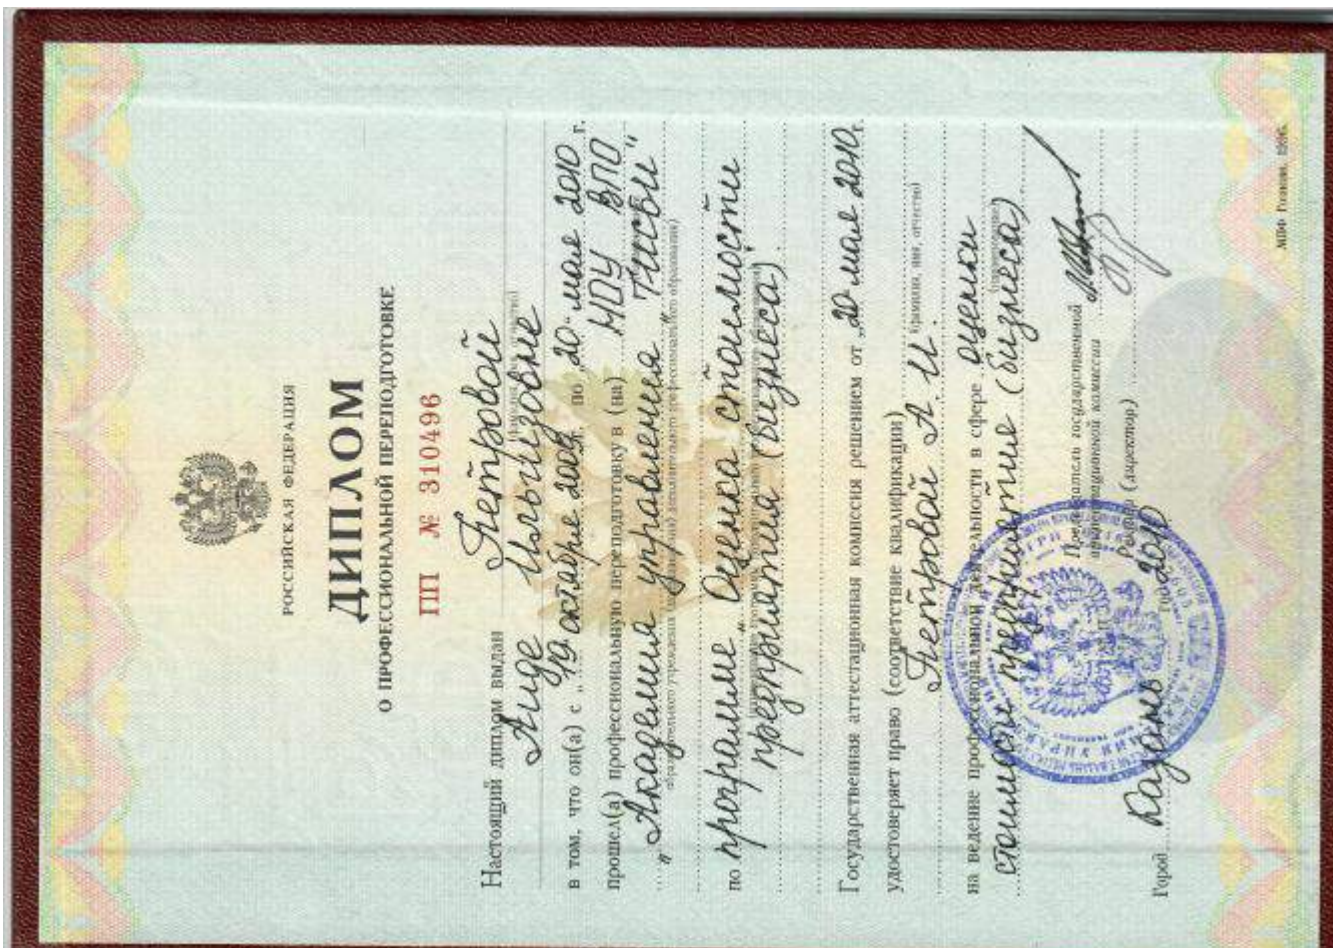 РОССИЙСКАЯ ФЕДЕРАЦИЯ
ДИПЛОМ
О ПРОФЕССИОНАЛЬНОЙ ПЕРЕПОДГОТОВКЕ
ПП № 310496
Настоящий диплом выдан Петровой
(фамилия, имя, отчество)
Аиде Ильгизовне
в том, что он(а) с „19 октября 2009 г. по „20" мая 2010 г.
прошел(а) профессиональную переподготовку в (на) НОУ ВПО
„Академия управления „Тисби"
образовательного учреждения дополнительного профессионального образования)
по программе „Оценка стоимости
предприятия (бизнеса)"
Государственная аттестационная комиссия решением от „20 мая 2010 г.
удостоверяет право (соответствие квалификации)
Петровой А. И.
(фамилия, имя, отчество)
на ведение профессиональной деятельности в сфере оценки
стоимости предприятия (бизнеса)
Председатель государственной
аттестационной комиссии
Ректор (директор)
Город Казань год 2010
МПФ Гознака. 1996.